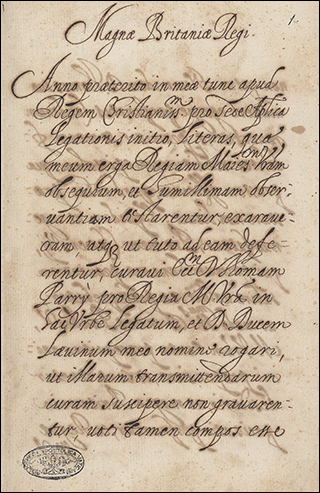 1.
Magnæ Britaniæ Regi.
Anno præterito in meæ tunc apud
Regem Cristianis.m pro Sede Aplica
legationis initio, literas, quæ
meum erga Regiam Maies.tem Vram
obsequium, et sumissimam obser-
vantiam testarentur, exarave-
ram, atq. ut tuto ad eam defe-
rentur, curavi Thomam
Parry pro Regia M. Vra in
Urbe legatum, et D. Ducem
meo nomine rogari,
ut illarum transmittendarum
curam suscipere non gravaren-
tur, voti tamen compos esse